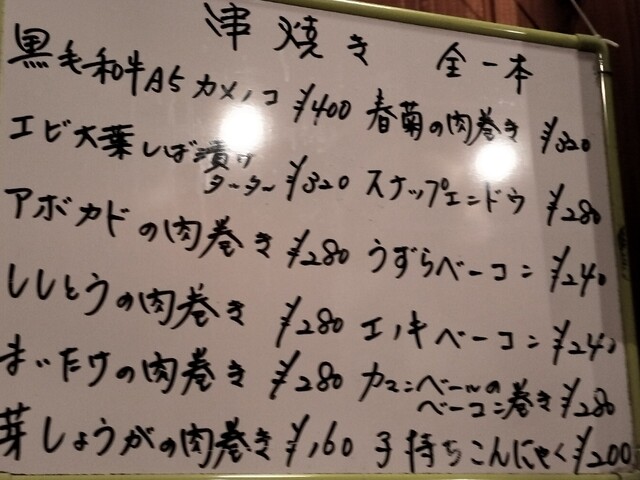 串焼き 全一本
黒毛和牛A5 カメノコ ¥400
エビ大葉しば漬けタルタル ¥320
アボカドの肉巻き ¥280
ししとうの肉巻き ¥280
まいたけの肉巻き ¥280
芽しょうがの肉巻き ¥160
春菊の肉巻き ¥320
スナップエンドウ ¥280
うずらベーコン ¥240
エノキベーコン ¥240
カマンベールの
ベーコン巻き ¥280
子持ちこんにゃく ¥200